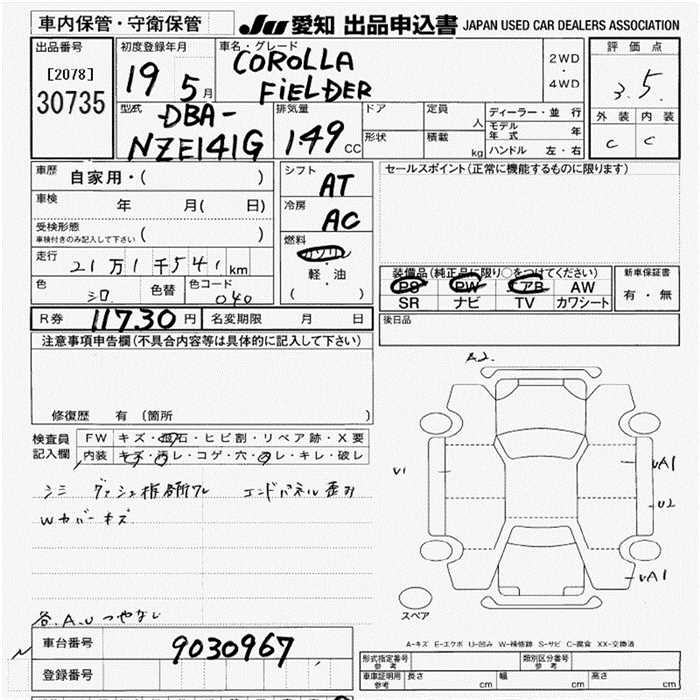 車内保管・守衛保管
JU 愛知 出品申込書 JAPAN USED CAR DEALERS ASSOCIATION
出品番号
[2078]
30735
初度登録年月
19 5 月
車名・グレード
COROLLA
FiELDER
2WD
・
4WD
評価点
3.5
外装 内装
C C
型式
DBA-
NZE141G
排気量
1.49 CC
ドア
形状
定員 人
積載 kg
ディーラー・並行
モデル年式 年
ハンドル 左・右
車歴
自家用・( )
車検 年 月( 日)
受検形態
車検付きのみ記入して下さい ( )
走行
21万1千541 km
色 シロ 色替 色コード 040
シフト
AT
冷房
AC
燃料
ガソリン
・
軽・油
( )
セールスポイント(正常に機能するものに限ります)
装備品(純正品に限り○をつけてください)
PS PW エアB AW
SR ナビ TV カワシート
新車保証書
有・無
後日品
R券 11730 円 名変期限 月 日
注意事項申告欄(不具合内容等は具体的に記入して下さい)
修復歴 有 〔箇所 〕
検査員
記入欄
FW キズ・飛石・ヒビ割・リペア跡・X要
内装 キズ・汚レ・コゲ・穴・スレ・キレ・破レ
シミ ダッシュ板 エンドパネル歪み
Wカバーキズ
各.A.U つやなし
A2.
V1
VA1
U2
VA1
スペア
A-キズ E-エクボ U-凹み W-補修跡 S-サビ C-腐食 XX-交換済
車台番号 9030967
登録番号
形式指定番号
参考
類別区分番号
参考
車庫証明用
参考
長さ cm 幅 cm 高さ cm